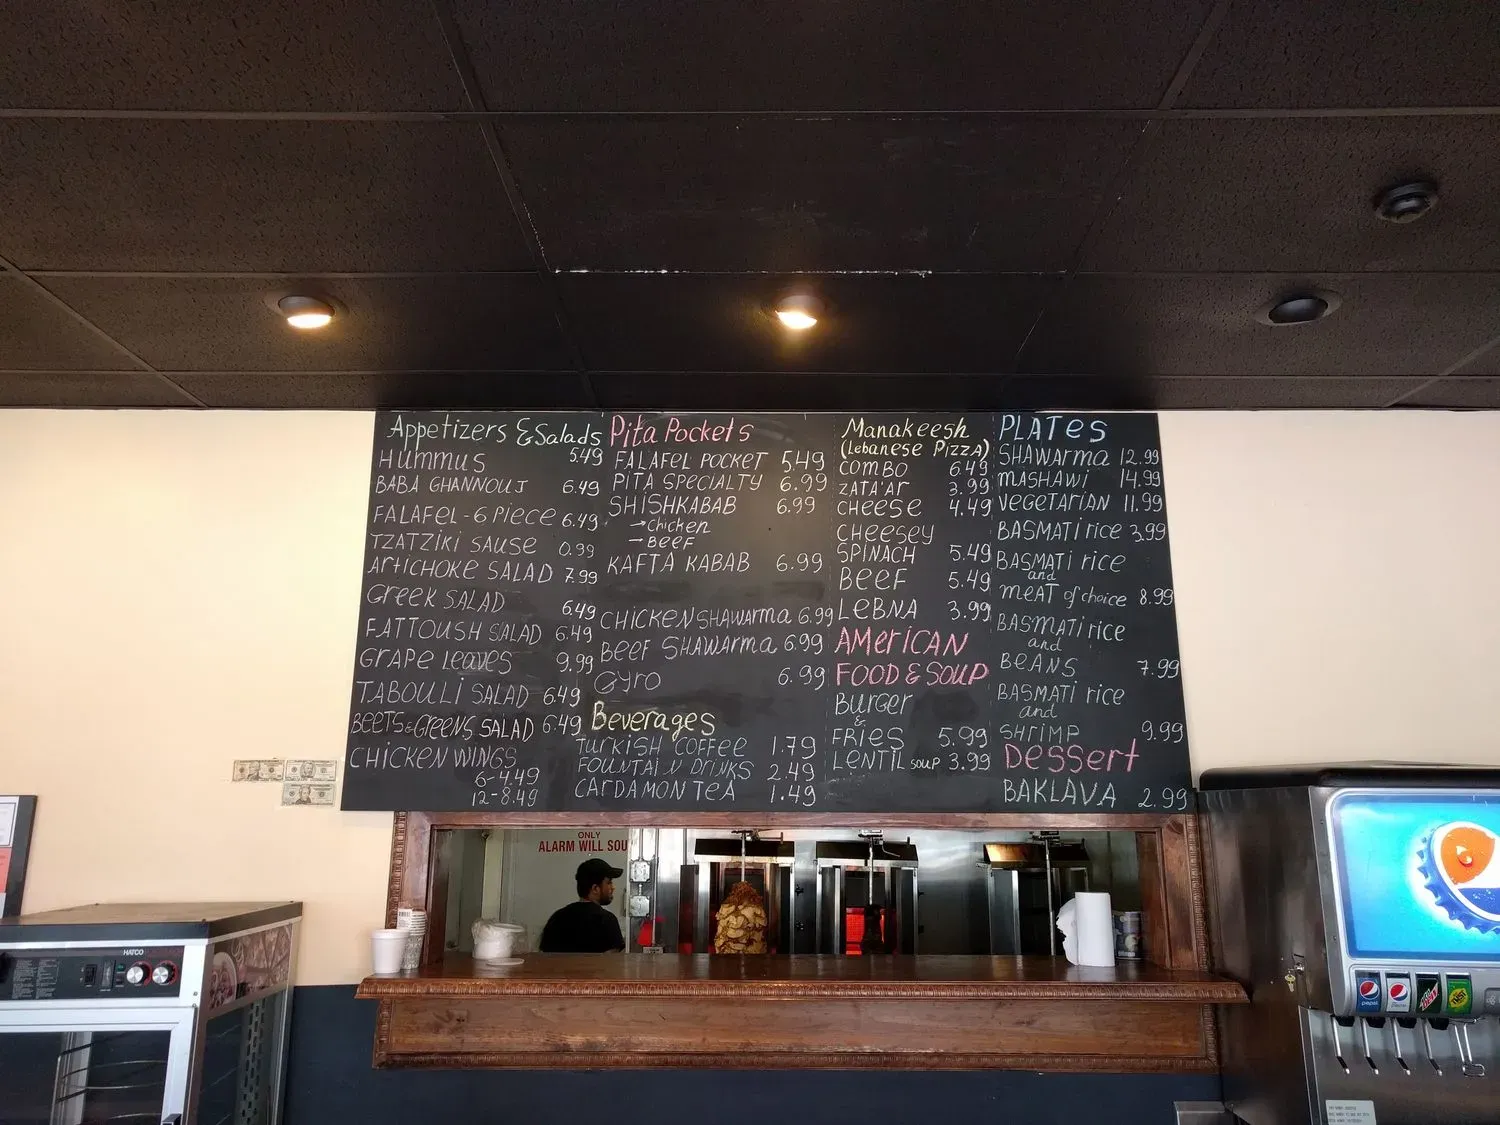 Appetizers & Salads
Hummus 5.49
BABA GHANNOUJ 6.49
FALAFEL - 6 PIECE 6.49
TZATZIKI SAUSE 0.99
ArtiCHOKE SALAD 7.99
Greek SALAD 6.49
FATTOUSH SALAD 6.49
GRAPE Leaves 9.99
TABOULLI SALAD 6.49
BEETS & GreeNS SALAD 6.49
CHICKEN WINGS
6-4.49
12-8.49
Pita Pockets
FALAFEL POCKET 5.49
PITA SPECIALTY 6.99
SHISHKABAB 6.99
→ Chicken
– BEEF
KAFTA KABAB 6.99
CHICKEN SHAWArma 6.99
BEEF SHAWArma 6.99
Gyro 6.99
Beverages
Turkish COFFEE 1.79
FOUNTAIN DriNKS 2.49
CARDAMON TEA 1.49
Manakeesh
(Lebanese PiZZA)
COMBO 6.49
ZATA'AR 3.99
CHEESE 4.49
CHEESEY
SPINACH 5.49
BEEF 5.49
LEBNA 3.99
AMERICAN
FOOD & SOUP
Burger
&
FRIES 5.99
LENTIL SOUP 3.99
PLATES
SHAWArma 12.99
MASHAWi 14.99
VEGETARIAN 11.99
BASMATi rice 3.99
BASMATi rice
and
meAT of choice 8.99
BASMATi rice
and
BEANS 7.99
BASMATI rice
and
SHriMP 9.99
Dessert
BAKLAVA 2.99
ONLY
ALARM WILL SOU
HATCO
pepsi
pepsi